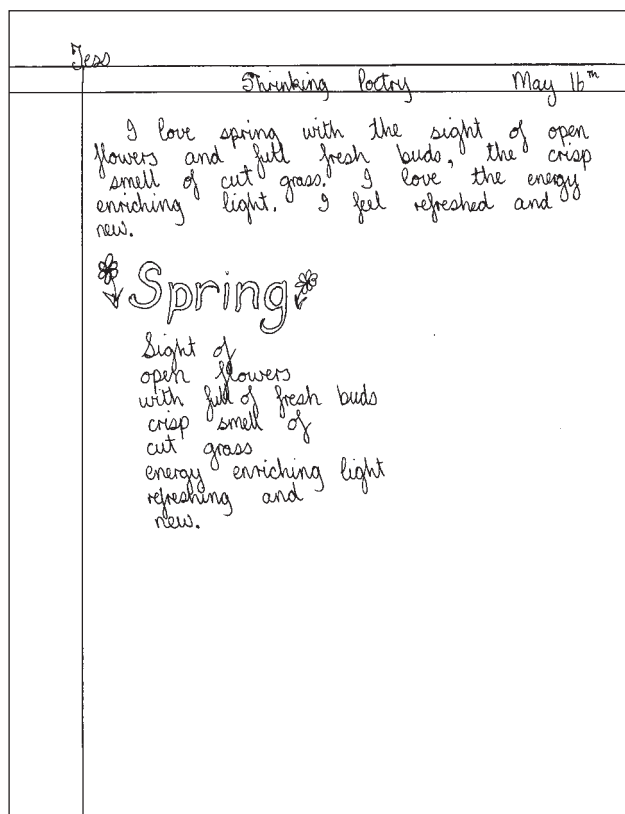 Tess
Shrinking Poetry May 16th
I love spring with the sight of open
flowers and full fresh buds, the crisp
smell of cut grass. I love the energy
enriching light. I feel refreshed and
new.
Spring
Sight of
open flowers
with full of fresh buds
crisp smell of
cut grass
energy enriching light
refreshing and
new.